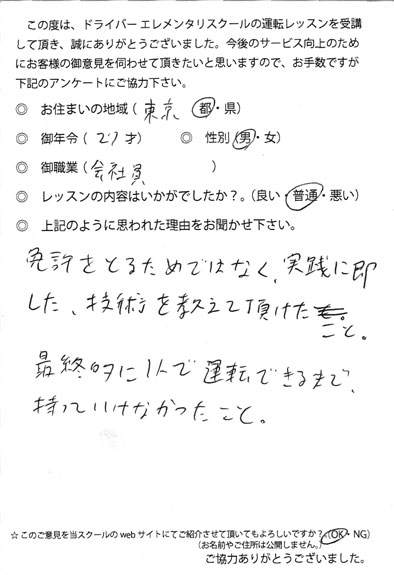 この度は、ドライバー エレメンタリスクールの運転レッスンを受講
して頂き、誠にありがとうございました。今後のサービス向上のため
にお客様の御意見を伺わせて頂きたいと思いますので、お手数ですが
下記のアンケートにご協力下さい。
◎ お住まいの地域 ( 東京 都・県)
◎ 御年令 ( 27 才) ◎ 性別 (男・女)
◎ 御職業 ( 会社員 )
◎ レッスンの内容はいかがでしたか？。(良い・普通・悪い)
◎ 上記のように思われた理由をお聞かせ下さい。
免許をとるためではなく、実践に即
した、技術を教えて頂けた
こと。
最終的に1人で運転できるまで、
持っていけなかったこと。
☆ このご意見を当スクールの web サイトにてご紹介させて頂いてもよろしいですか？ (OK・NG)
(お名前やご住所は公開しません。)
ご協力ありがとうございました。